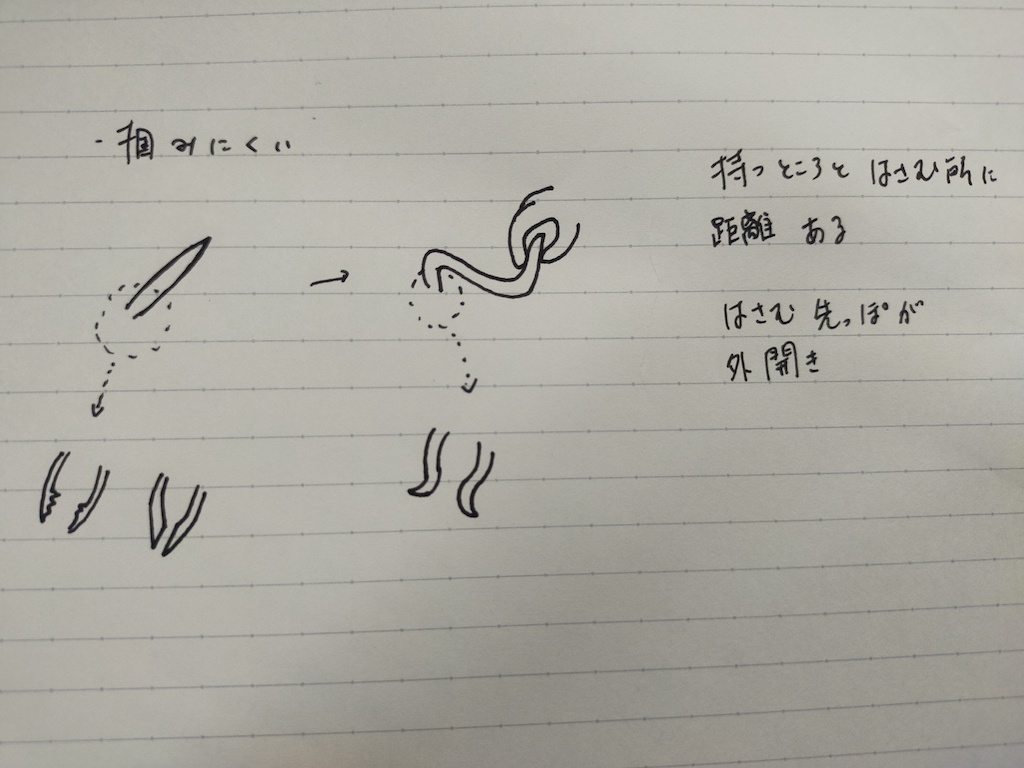 ・掴みにくい
持つところとはさむ所に
距離 ある
はさむ先っぽが
外開き